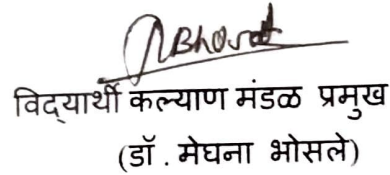 विद्यार्थी कल्याण मंडळ प्रमुख
(डॉ . मेघना भोसले)